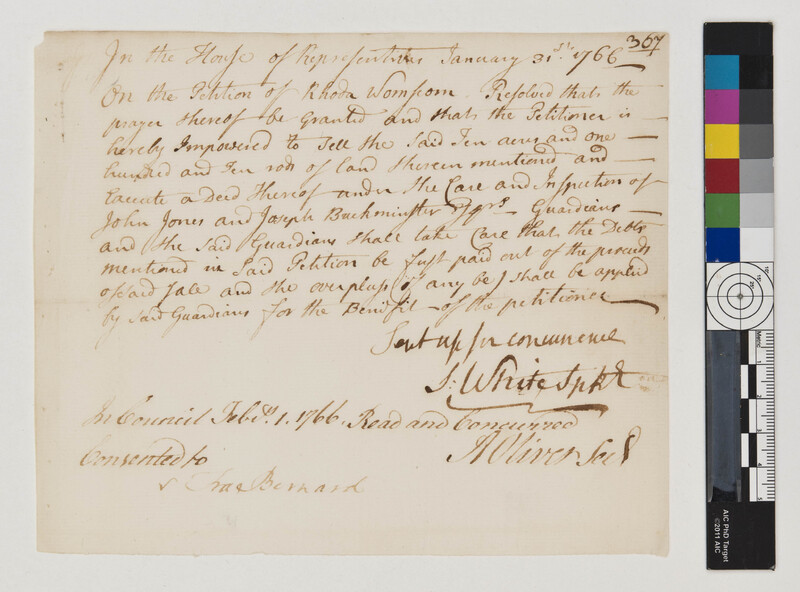 367
In the House of Representatives January 31st. 1766
On the Petition of Rhoda Womsom. Resolved that the
prayer thereof be granted and that the Petitioner is
hereby Impowered to Sell the Said Ten acres and one
hundred and Ten rods of land therein mentioned and
Execute a Deed thereof under the Care and Inspection of
John Jones and Joseph Buckminster Esqrs. Guardians
and the Said Guardians shall take Care that the Debts
mentioned in Said Petition be first paid out of the proceeds
of said Sale and the overpluss (if any be) shall be applied
by said Guardians for the Benefit of the petitioner
Sent up for concurrence
S: White Spkr
In Council Feby. 1. 1766. Read and Concurred
Consented to
A Oliver Secy
Fra Bernard
Metric
AIC PhD Target
©2011 AIC